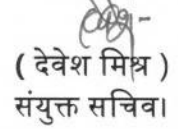 ( देवेश मिश्र )
संयुक्त सचिव।